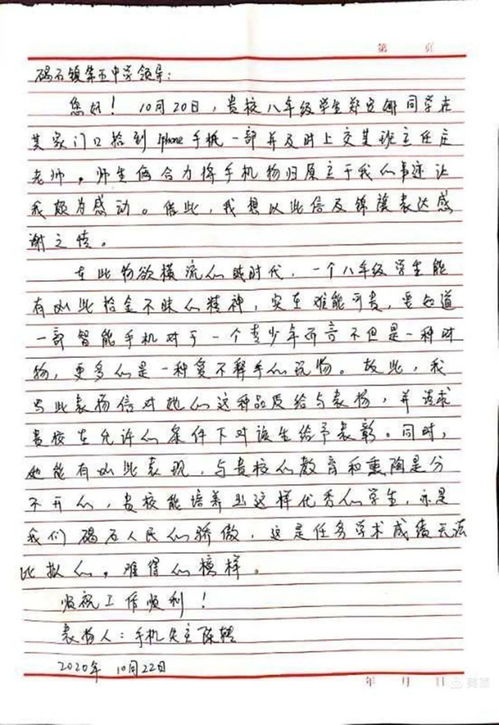 第 页
碣石镇第五中学领导：
您好！10月20日，贵校八年级学生郑 娜同学在
其家门口拾到Iphone手机一部并及时上交其班主任庄
老师。师生俩合力将手机物归原主于我的事迹让
我颇为感动。借此，我想以此信及锦旗表达感
谢之情。
在此物欲横流的时代，一个八年级学生能
有如此拾金不昧的精神，实在难能可贵，要知道
一部智能手机对于一个青少年而言不但是一种财
物，更多的是一种爱不释手的玩物。故此，我
以此表扬信对她的这种品及给与表扬，并请求
贵校在允许的条件下对该生给予表彰。同时，
她能有如此表现，与贵校的教育和熏陶是分
不开的，贵校能培养出这样优秀的学生，亦是
我们碣石人民的骄傲，这是任务学术成绩无法
比拟的，难得的模样。
顺祝工作顺利！
表扬人：手机失主陈
2020年 10月22日
年 月 日